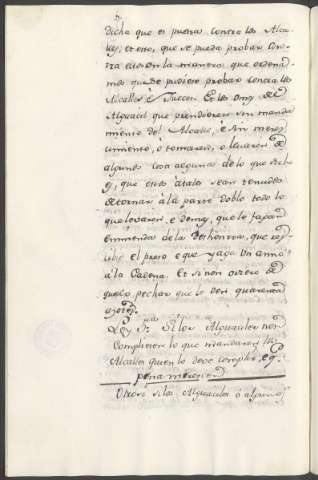 dicha que es puesta contra los Alca
lles; et esto, que se pueda probar con
tra ellos en la manera que ordena
mos que se pudiere probar contra los
Alcalles é Jueces. Et los omes del
Alguacil que prendieren sin manda
miento del Alcalle, é sin meres
cimiento, ó tomaren, ó levaren de
alguno cosa alguna de lo que dicho
es, que estos átales sean tenudos
de tornar á la parte doblo todo lo
que levaren, é demas, que le fagan
emmienda de la deshonrra, que res
cibió el preso é que yaga un anno
á la Cadena. Et si non oviere de
que lo pechar que le den quarenta
azotes.
Ley Si los Alguaciles non
complieren lo que mandaren los
Alcalles quien lo debe complir, é q.
pena merescen
Otrosi si los Alguaciles ó algunos